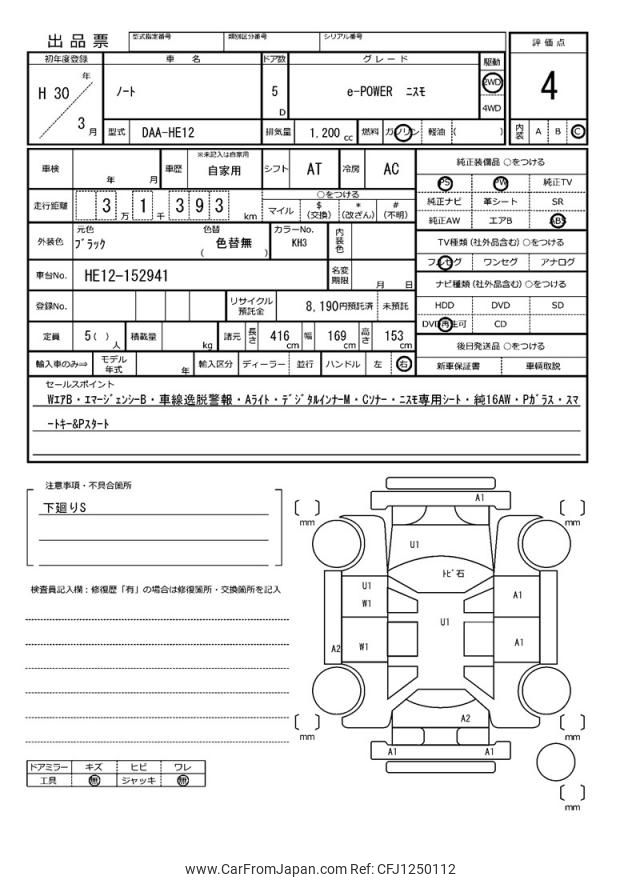 出 品 票
型式指定番号 類別区分番号 シリアル番号
評 価 点
4
内装 A B C
初年度登録 車 名 ドア数 グ レ ー ド 駆動
H 30 年 3 月
ﾉｰﾄ
5 D
e-POWER ﾆｽﾓ
2WD
4WD
型式 DAA-HE12 排気量 1,200 cc 燃料 ガソリン 軽油 ( )
車検 年 月 車歴 ※未記入は自家用 自家用 シフト AT 冷房 AC
走行距離 3 万 1 千 3 9 3 km
○をつける
マイル $(交換) *(改ざん) #(不明)
外装色 元色 ﾌﾞﾗｯｸ 色替 ( 色替無 ) カラーNo. KH3 内装色
車台No. HE12-152941 名変期限 月 日
登録No. リサイクル預託金 8,190円預託済 未預託
定員 5 ( ) 人 積載量 kg 諸元 長さ 416 cm 幅 169 cm 高さ 153 cm
輸入車のみ⇒ モデル年式 年 輸入区分 ディーラー 並行 ハンドル 左 右
純正装備品 ○をつける
PS PW 純正TV
純正ナビ 革シート SR
純正AW エアB ABS
TV種類 (社外品含む) ○をつける
フルセグ ワンセグ アナログ
ナビ種類 (社外品含む) ○をつける
HDD DVD SD
DVD再生可 CD
後日発送品 ○をつける
新車保証書 車輌取説
セールスポイント
WｴｱB・ｴﾏｰｼﾞｪﾝｼｰB・車線逸脱警報・Aﾗｲﾄ・ﾃﾞｼﾞﾀﾙｲﾝﾅｰM・Cｿﾅｰ・ﾆｽﾓ専用ｼｰﾄ・純16AW・Pｶﾞﾗｽ・ｽﾏ
ｰﾄｷｰ&Pｽﾀｰﾄ
注意事項・不具合箇所
下廻りS
検査員記入欄：修復歴「有」の場合は修復箇所・交換箇所を記入
ドアミラー キズ ヒビ ワレ
工具 無 ジャッキ 無
A1
mm mm
U1
ﾄﾋﾞ石
U1
W1
A1
U1
A2 W1 A1
A2
mm mm
A1 A1
mm
www.CarFromJapan.com Ref: CFJ1250112